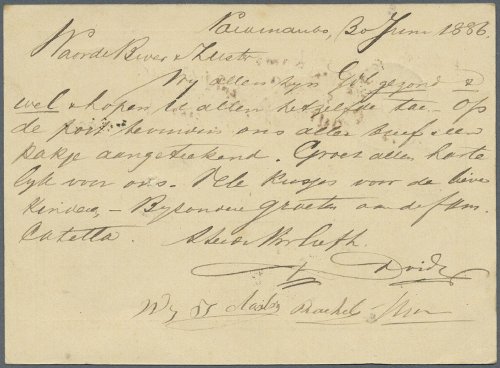 Paramaribo, 30 Juni 1886.
Waarde Broer & Zuster
Wij allen zyn God gezond &
wel & hopen U allen hetzelfde toe - Op
de post hernomen ons aller brief & een
pakje aangeteekend. Groet allen harte
lyk voor ons. Vele kusjes voor de lieve
kinderen - Byzondere groeten aan de fam.
Catella.
David
Wy Rachel